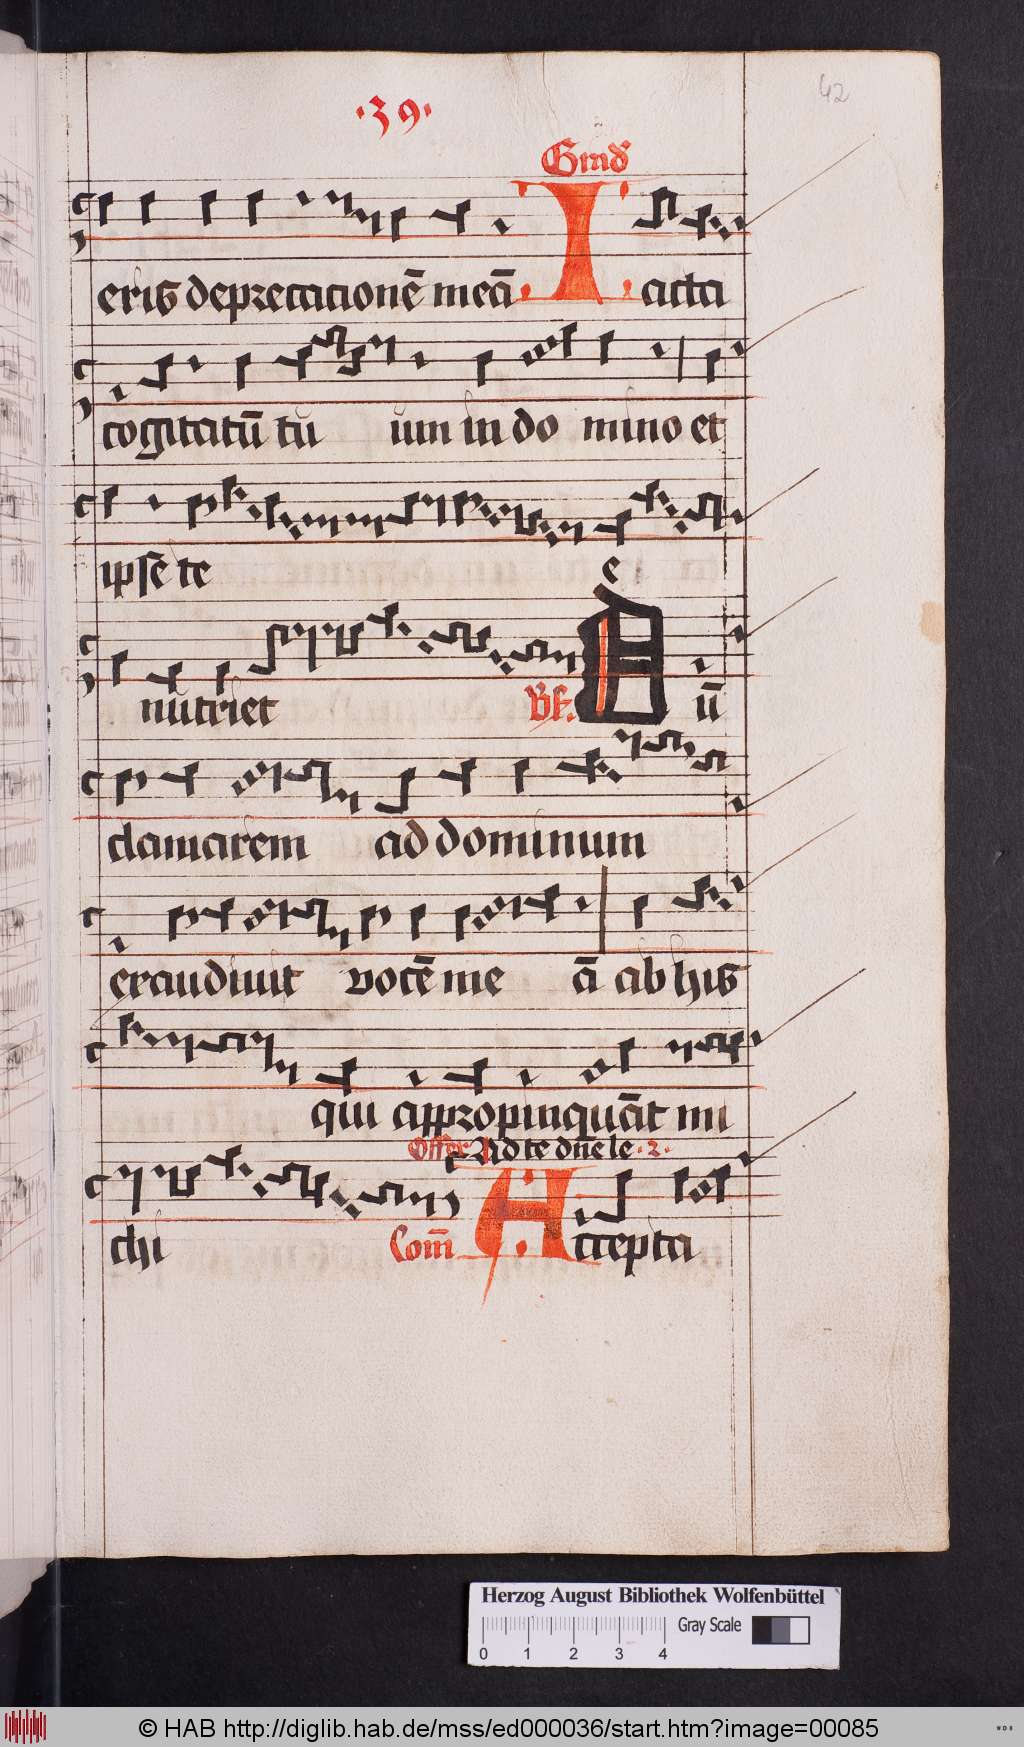 ·39·
42
Grad̄
eris deprecacionē meā Iacta
cogitatū tu um in do mino et
ipse te e
nutriet Vs̄. Dū
clamarem ad dominum
exaudiuit vocē me ā ab his
qui appropinquāt mi
Offer Ad te dn̄e le · 2 ·
chi Com̄ Accepta
Herzog August Bibliothek Wolfenbüttel
Gray Scale
0 1 2 3 4
© HAB http://diglib.hab.de/mss/ed000036/start.htm?image=00085